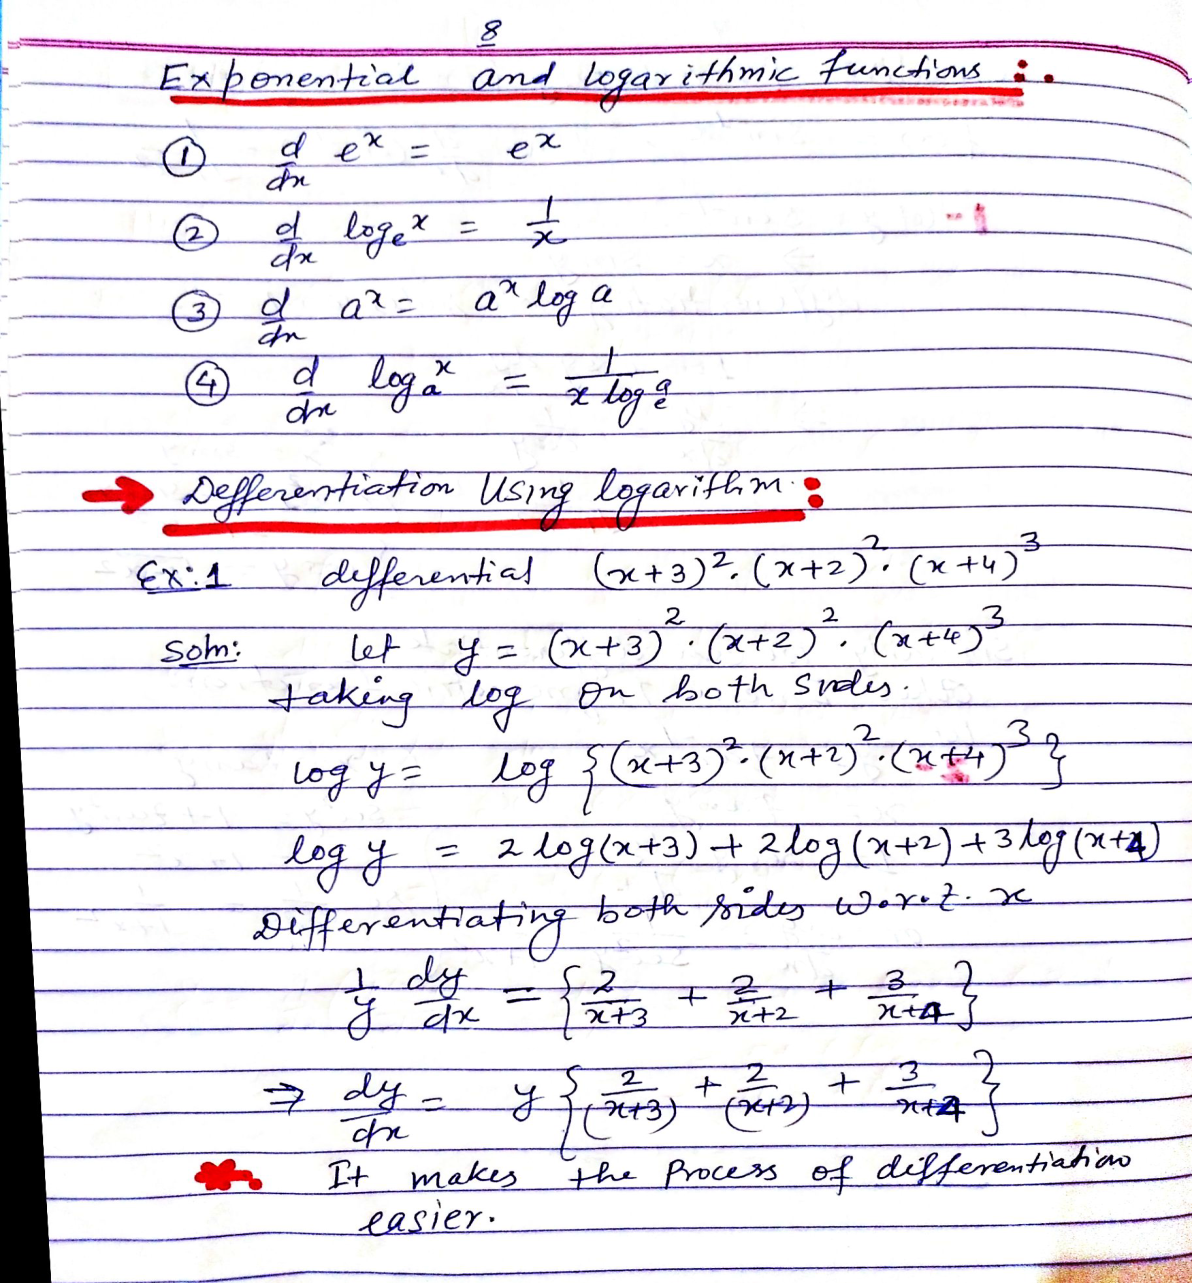 8
Exponential and logarithmic functions :.
① d/dx e^x = e^x
② d/dx log_e x = 1/x
③ d/dx a^x = a^x log a
④ d/dx log_a x = 1/(x log_e a)
→ Defferentiation Using logarithm :
Ex:1 defferential (x+3)². (x+2)². (x+4)³
Soln: let y = (x+3)². (x+2)². (x+4)³
taking log on both sides.
log y = log {(x+3)². (x+2)². (x+4)³}
log y = 2 log(x+3) + 2 log(x+2) + 3 log(x+4)
Differentiating both sides w.r.t. x
1/y dy/dx = {2/(x+3) + 2/(x+2) + 3/(x+4)}
⇒ dy/dx = y {2/(x+3) + 2/(x+2) + 3/(x+4)}
It makes the Process of differentiation
easier.